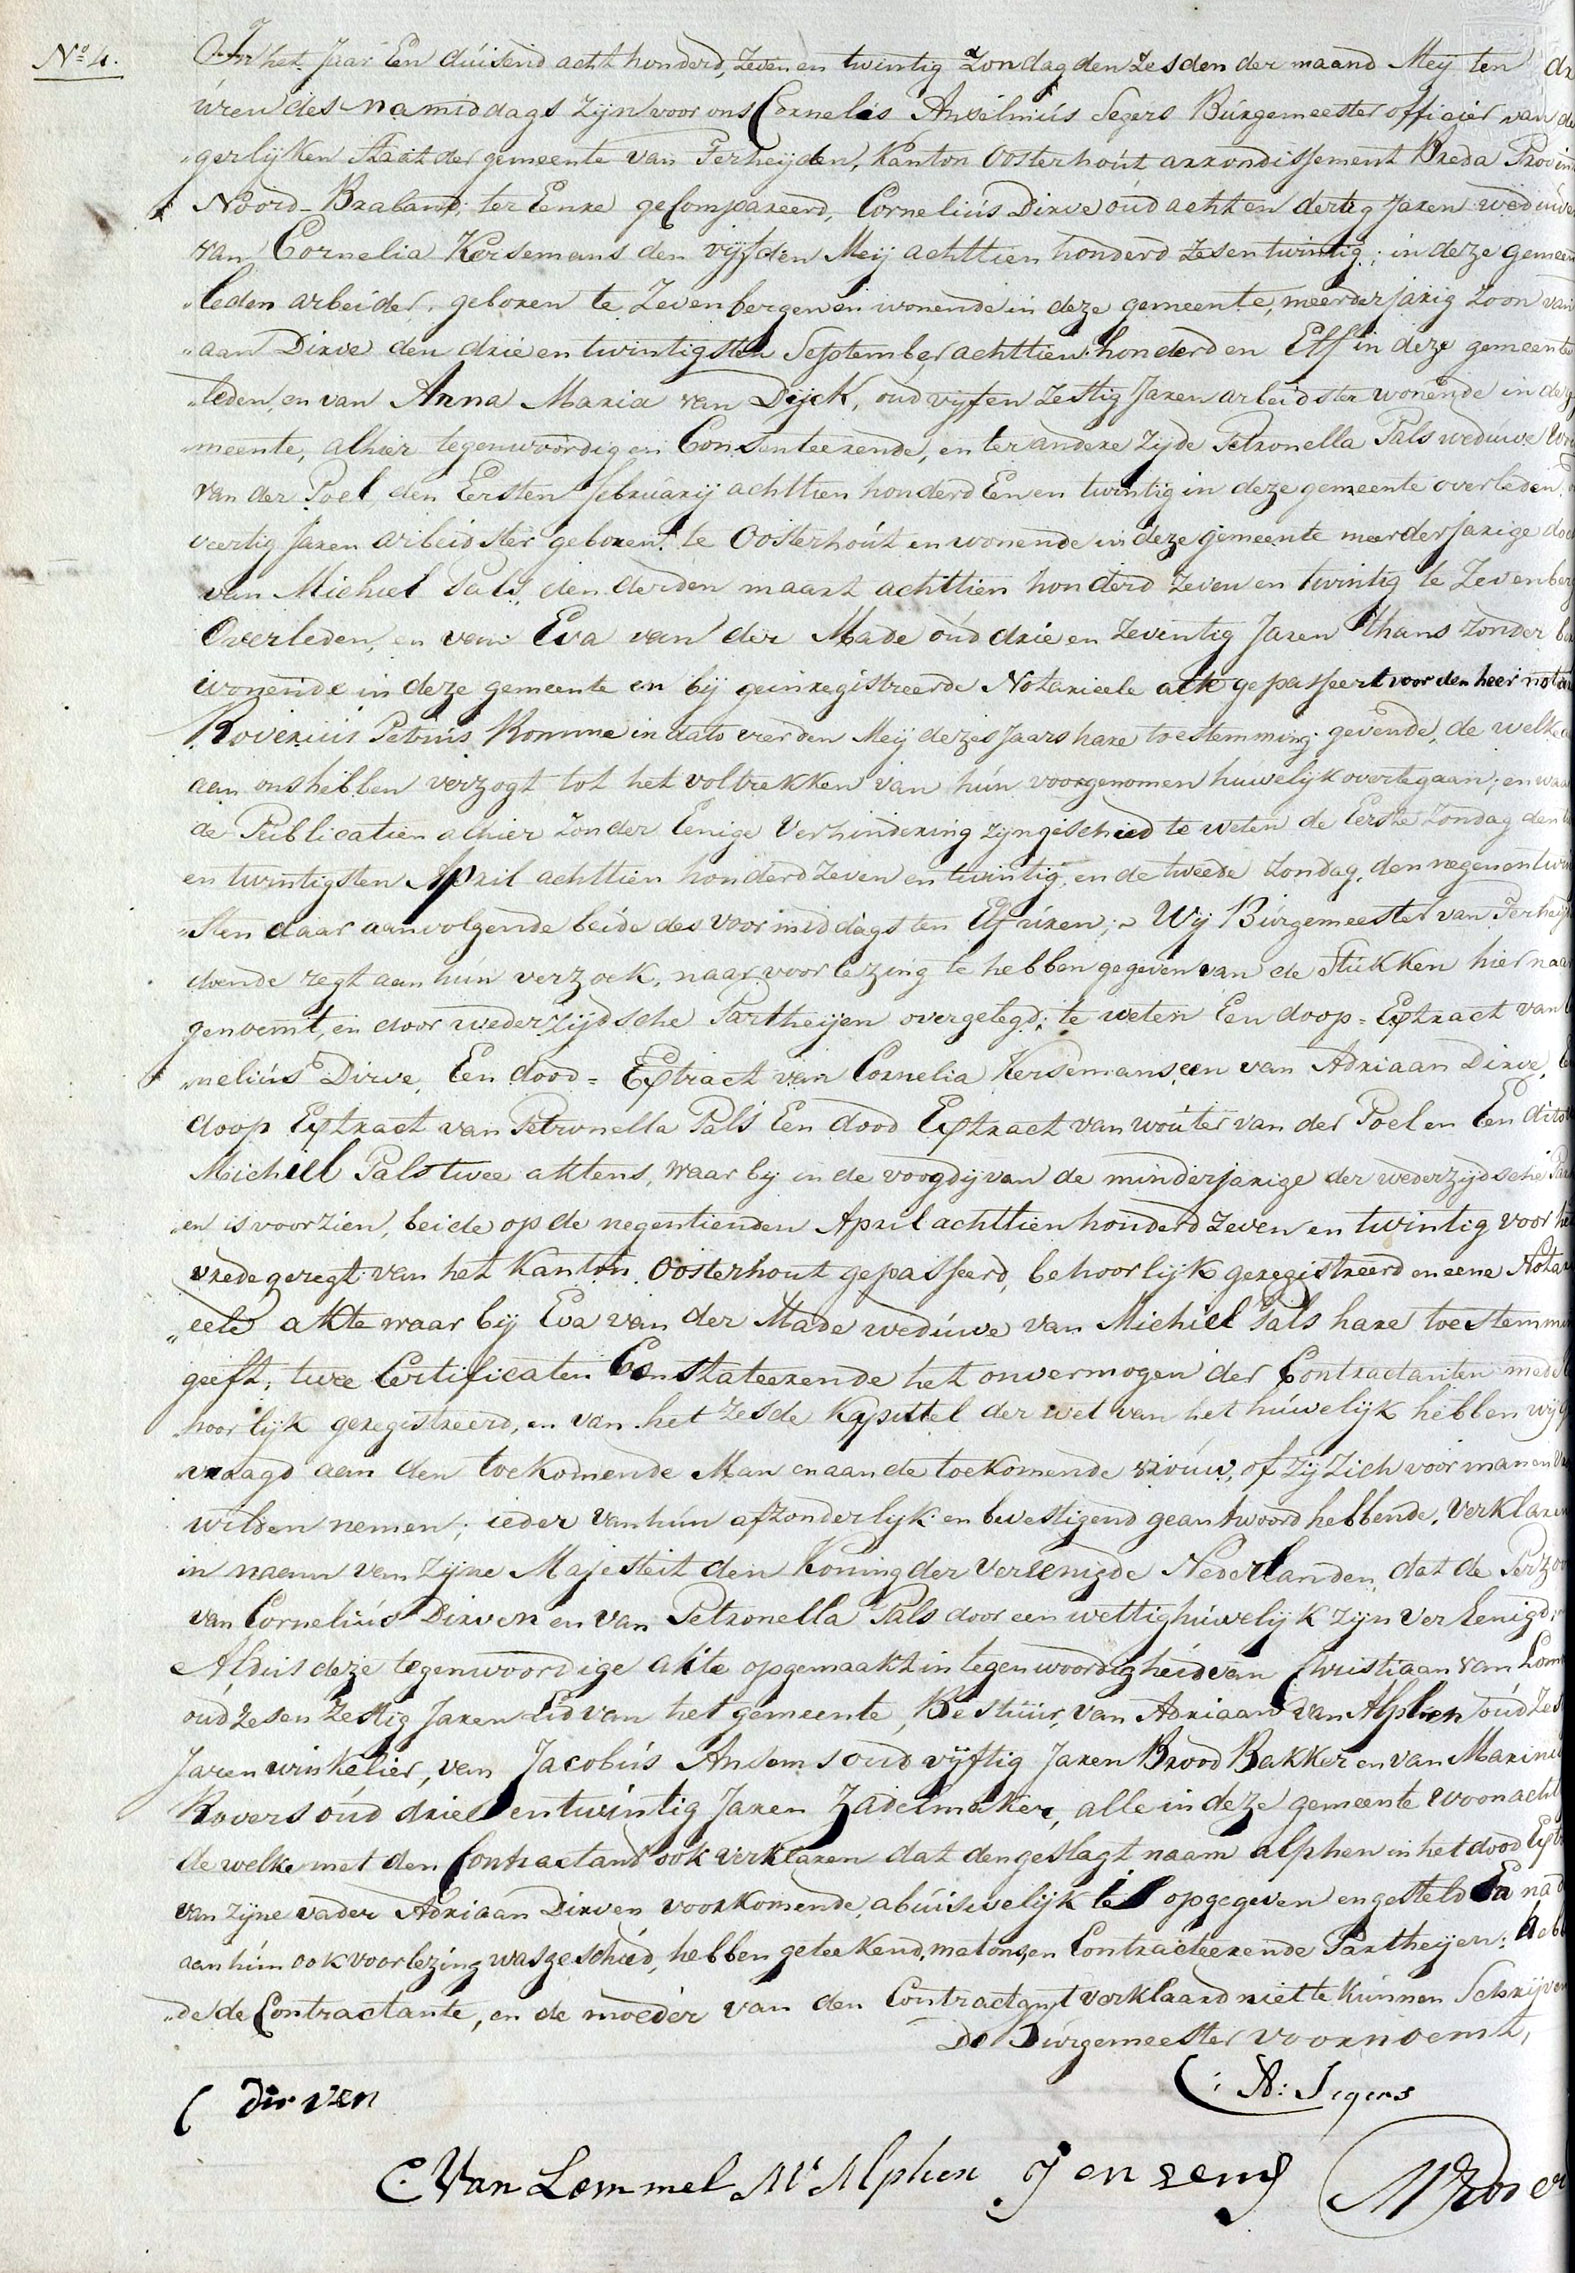 No 4.
In het Jaar Een duisend acht honderd, zeven en twintig Zondag den Zesden der maand Meij ten
uren des namiddags zijn voor ons Cornelis Anselmus Segers Burgemeester officier van de
"gerlijken Staat der gemeente van Terheijden, Kanton Oosterhout arrondissement Breda Provin
Noord-Braband, ter Eenre geCompareerd, Cornelius Dirve oud acht en dertig Jaren weduwe
van Cornelia Kersemans den vijfden Meij achttien honderd zesentwintig; in deze gemeen
"leden arbeider, geboren te Zevenbergen en wonende in deze gemeente, meerderjarig zoon van
"aan Dirve den drie en twintigsten September achttien honderd en Elf in deze gemeente
"leden, en van Anna Maria van Dijck, oud vijf en zestig Jaren arbeidster wonende in deze
"meente, alhier tegenwoordig en Consenteerende, en ter andere Zijde Petronella Pals weduwe
van der Poel, den Eersten februarij achttien honderd Een en twintig in deze gemeente overleden
veertig Jaren arbeidster geboren te Oosterhout en wonende in deze gemeente meerderjarige do
van Michiel Pals, den derden maart achttien honderd zeven en twintig te Zevenberg
Overleden, en van Eva van der Made oud drie en zeventig Jaren thans zonder be
wonende in deze gemeente en bij geinregistreerde Notarieele akte gepasseert voor den heer nota
Roverius Petrus Romme in dato vierden Meij dezes Jaars hare toestemming gevende, de welke
aan ons hebben verzogt tot het voltrekken van hun voorgenomen huwelijk overtegaan; en waar
de Publicatien alhier zonder Eenige Verhindering zijn geschied te weten de Eerste Zondag den
en twintigsten April achttien honderd zeven en twintig, en de tweede zondag, den negenentwin
"sten daar aanvolgende beide des voormiddags ten Elf uren; Wij Burgemeester van Terheijd
doende regt aan hun verzoek, naar voorlezing te hebben gegeven van de Stukken hier naar
genoemt, en door wederzijdsche Partheijen overgelegd; te weten Een doop-Extract van
"nelius Dirve, Een dood-Extract van Cornelia Kersemans, een van Adriaan Dirve,
doop Extract van Petronella Pals Een dood Extract van wouter van der Poel en Een dito
Michiel Pals twee aktens, waar bij in de voogdij van de minderjarige der wederzijdsche Par
en is voorzien, beide op de negentienden April achttien honderd zeven en twintig voor het
vredegeregt van het Kanton Oosterhout gepasseerd, behoorlijk geregistreerd en eene Nota
"eele akte waar bij Eva van der Made weduwe van Michiel Pals hare toestemmin
geeft; twee Certificaten Constateerende het onvermogen der Contractanten mede
hoorlijk geregistreerd, en van het zesde Kapittel der wet van het huwelijk hebben wij g
vraagd aan den toekomende Man en aan de toekomende vrouw, of zij Zich voor man en v
wilden nemen; ieder van hun afzonderlijk en bevestigend geantwoord hebbende, verklaren
in naam van Zijne Majesteit den Koning der Vereenigde Nederlanden, dat de Perzo
van Cornelius Dirven en van Petronella Pals door een wettig huwelijk zijn ver Eenigd,
Alduis deze tegenwoordige akte opgemaakt in tegenwoordigheid van Christiaan van Lom
oud zes en Zestig Jaren Lid van het gemeente Bestuur, van Adriaan van Alphen oud zes
Jaren winkelier, van Jacobus Ansems oud vijftig Jaren Brood Bakker en van Marinus
Rovers oud drie en twintig Jaren Zadelmaker, alle in deze gemeente woonacht
de welke met den Contractand ook verklaren dat den geslagt naam alphen in het dood Ext
van zijne vader Adriaan Dirven voorkomende, abuisivelijk is opgegeven en gesteld En na
aan hun ook voorlezing was geschied, hebben geteekend, met ons, en Contracteerende Partheijen; heb
"de de Contractante, en de moeder van den Contractant verklaard niet te kunnen Schrijven
De Burgemeester voornoemt,
C: A: Segers
C Dirven
C. Van Lommel A V Alphen J Ansems M Rover